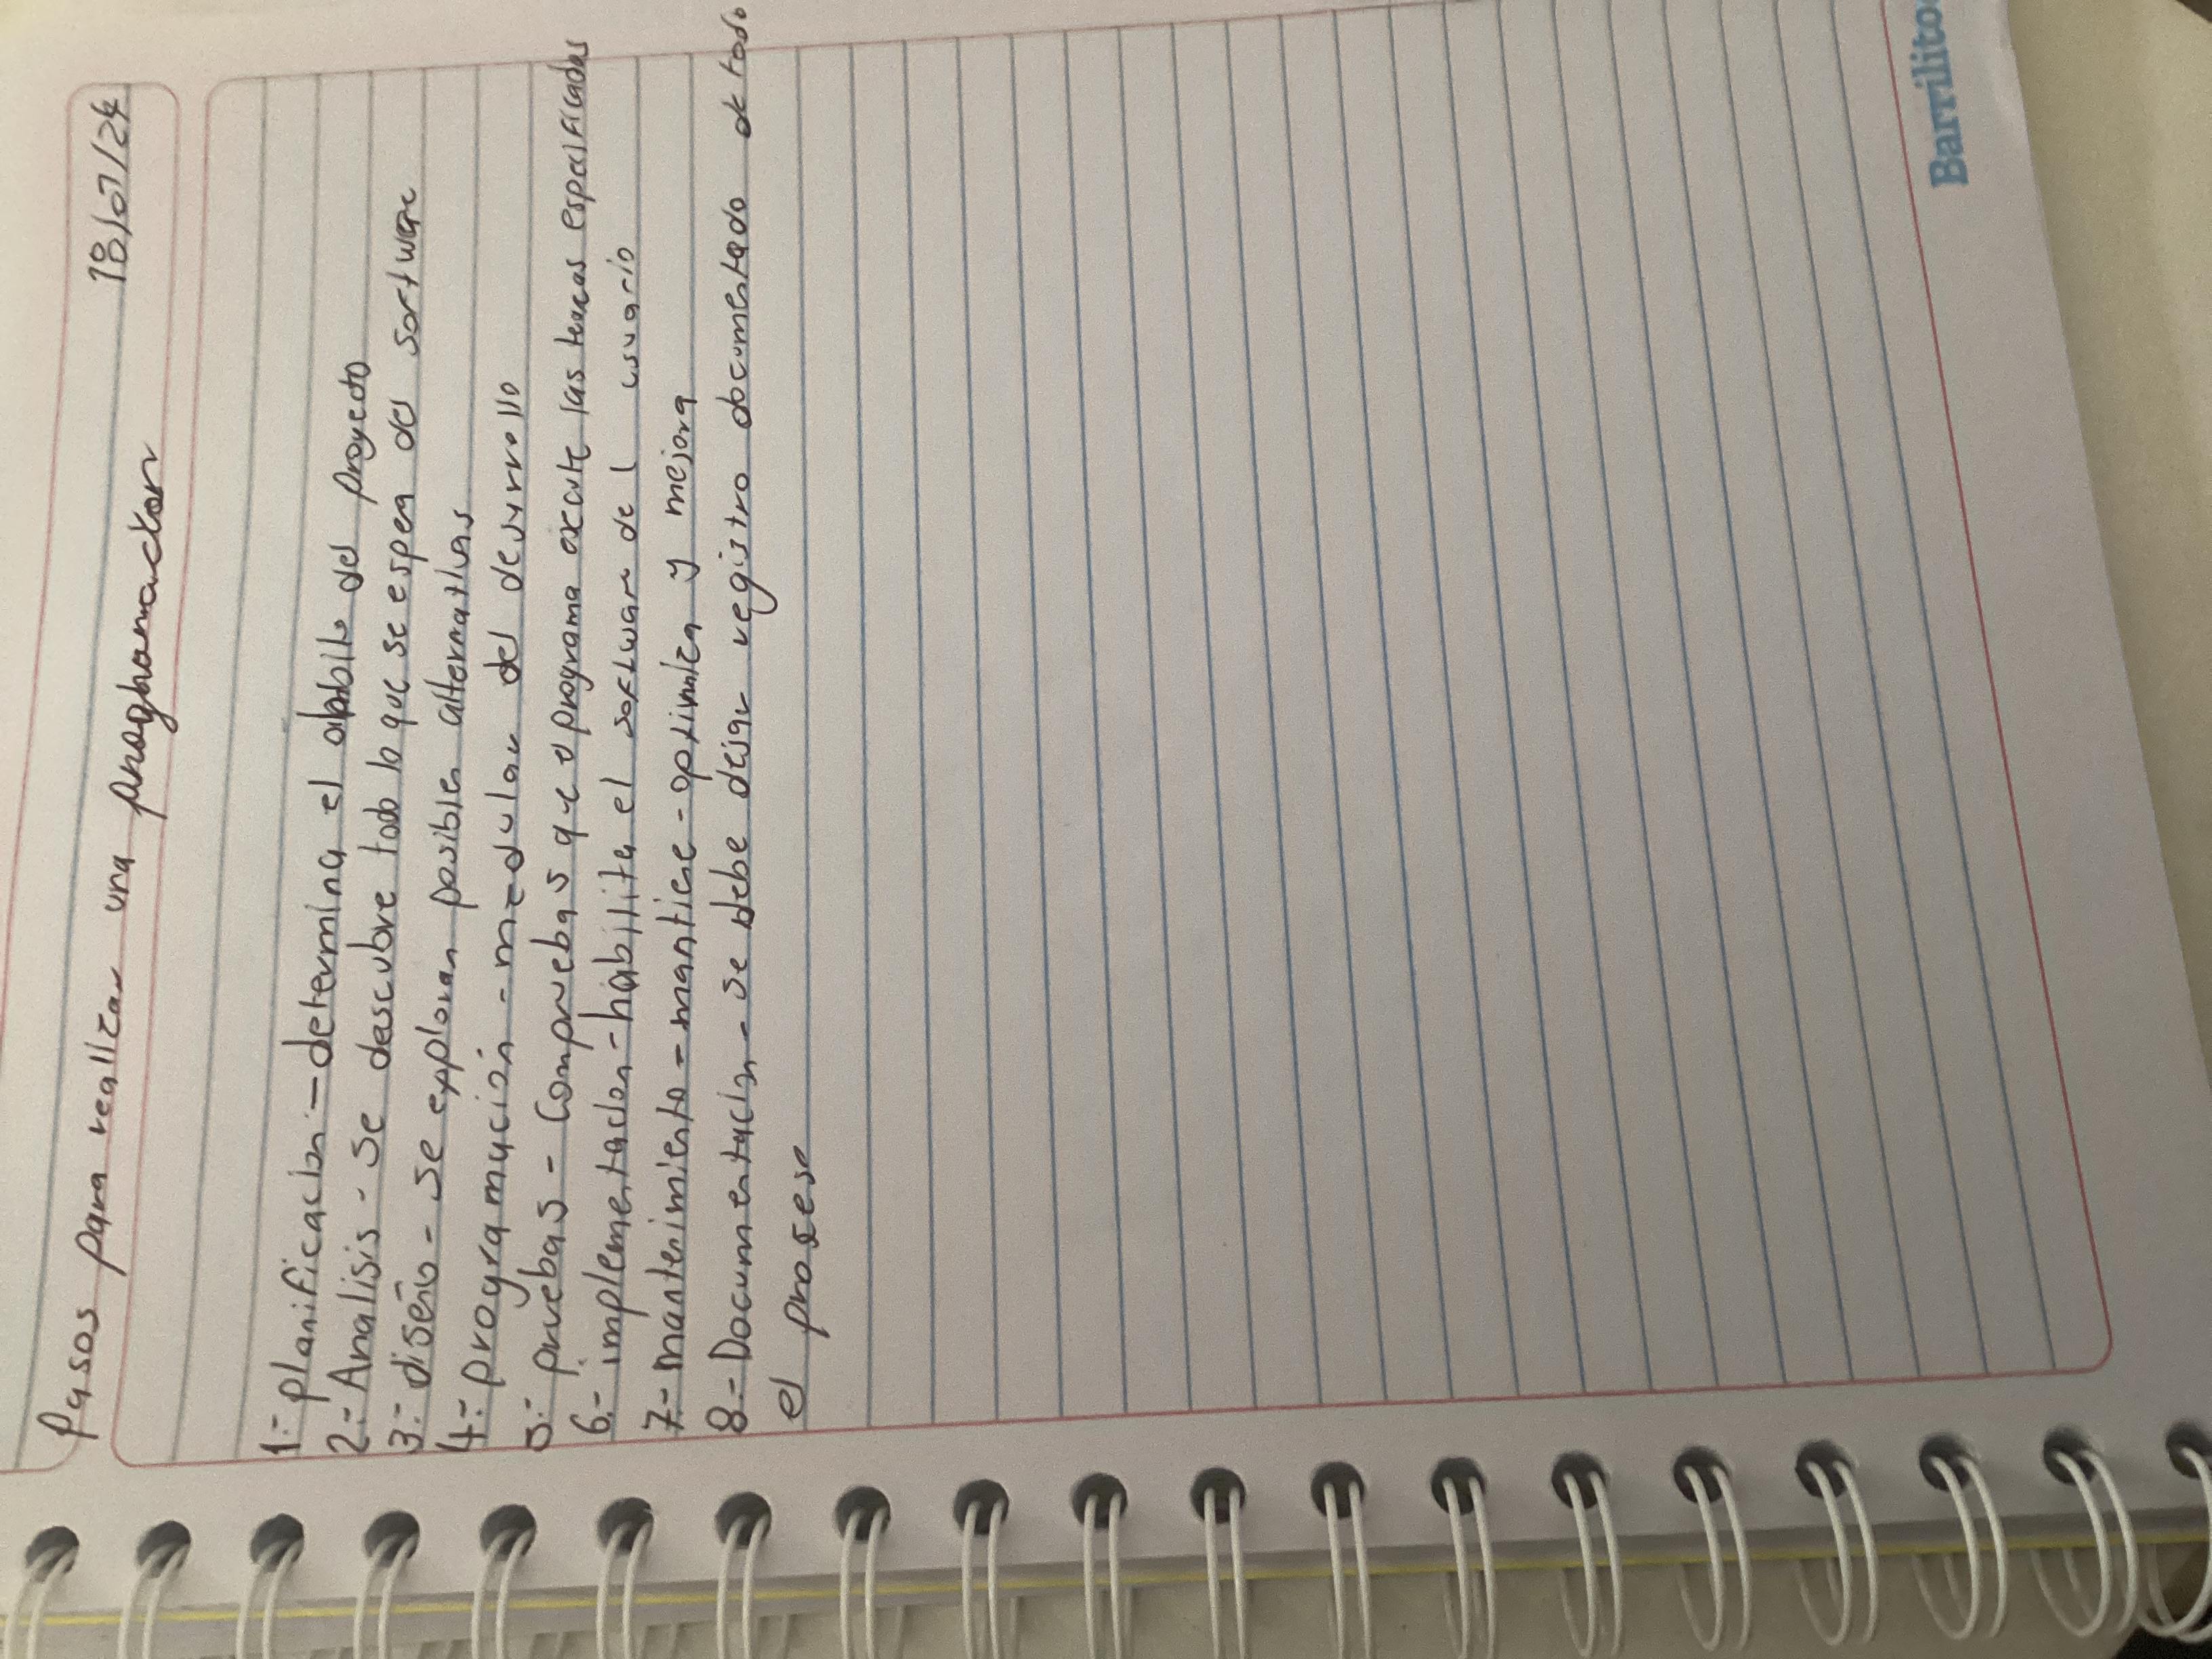 18/07/24
Pasos para realizar una
1.- planificacion - determina el del proyecto
2.- Analisis - se descubre todo lo que se espera del sortware
3.- diseño - se exploran posibles alternativas
4.- programación - medular del desarrollo
5.- pruebas - Compruebas que el programa execute las tareas especificadas
6.- implementacion - habilita el software del usuario
7.- mantenimiento - mantiene - optimiza y mejora
8.- Documentacion - se debe dejar registro documentado de todo
el proseso
Barrilito